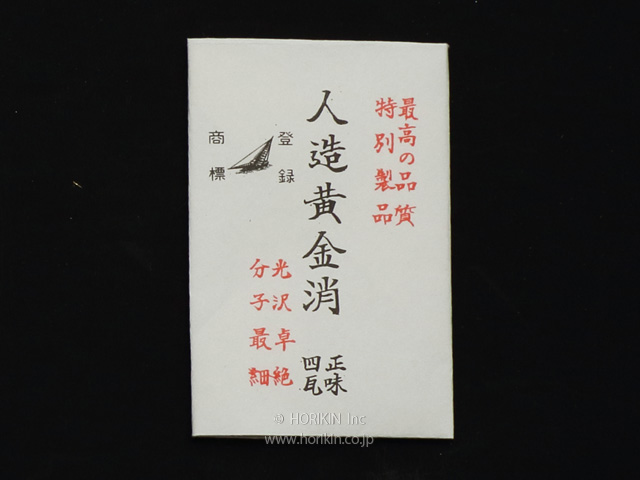 最高の品質
特別製品
人造黄金消
正味
四瓦
登録
商標
光沢卓絶
分子最細
© HORIKIN Inc
www.horikin.co.jp